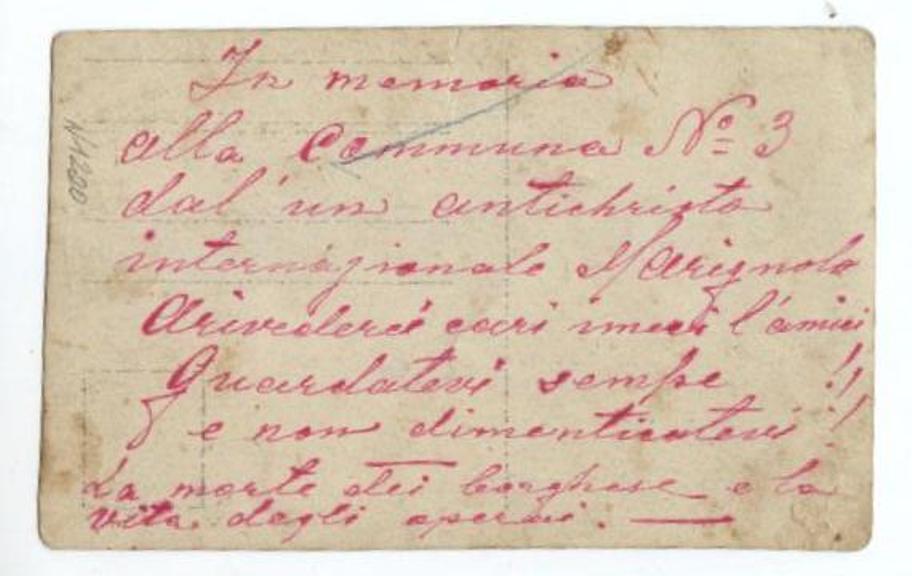 In memoria
alla Communa Nº 3
dal'un antichristo
internazionale Marignolo
Arivederci cari imiei l'amici
Guardatevi sempe !!
e non dimenticatevi !
La morte dei borghese e la
vita degli operai. —
N12200